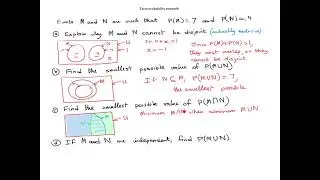 Extra probability example
Events M and N are such that P(M)=.7 and P(N)=.4
(a) Explain why M and N cannot be disjoint (mutually exclusive)
M N U
.7 + .4 + x = 1
x = -.1
Since P(M)+P(N)>1, they must overlap, so they cannot be disjoint
(b) Find the smallest possible value of P(M∪N)
If N ⊆ M, P(M∪N) = .7,
the smallest possible
(c) Find the smallest possible value of P(M∩N)
Minimum M∩N when maximum M∪N
(d) If M and N are independent, find P(M∪N).